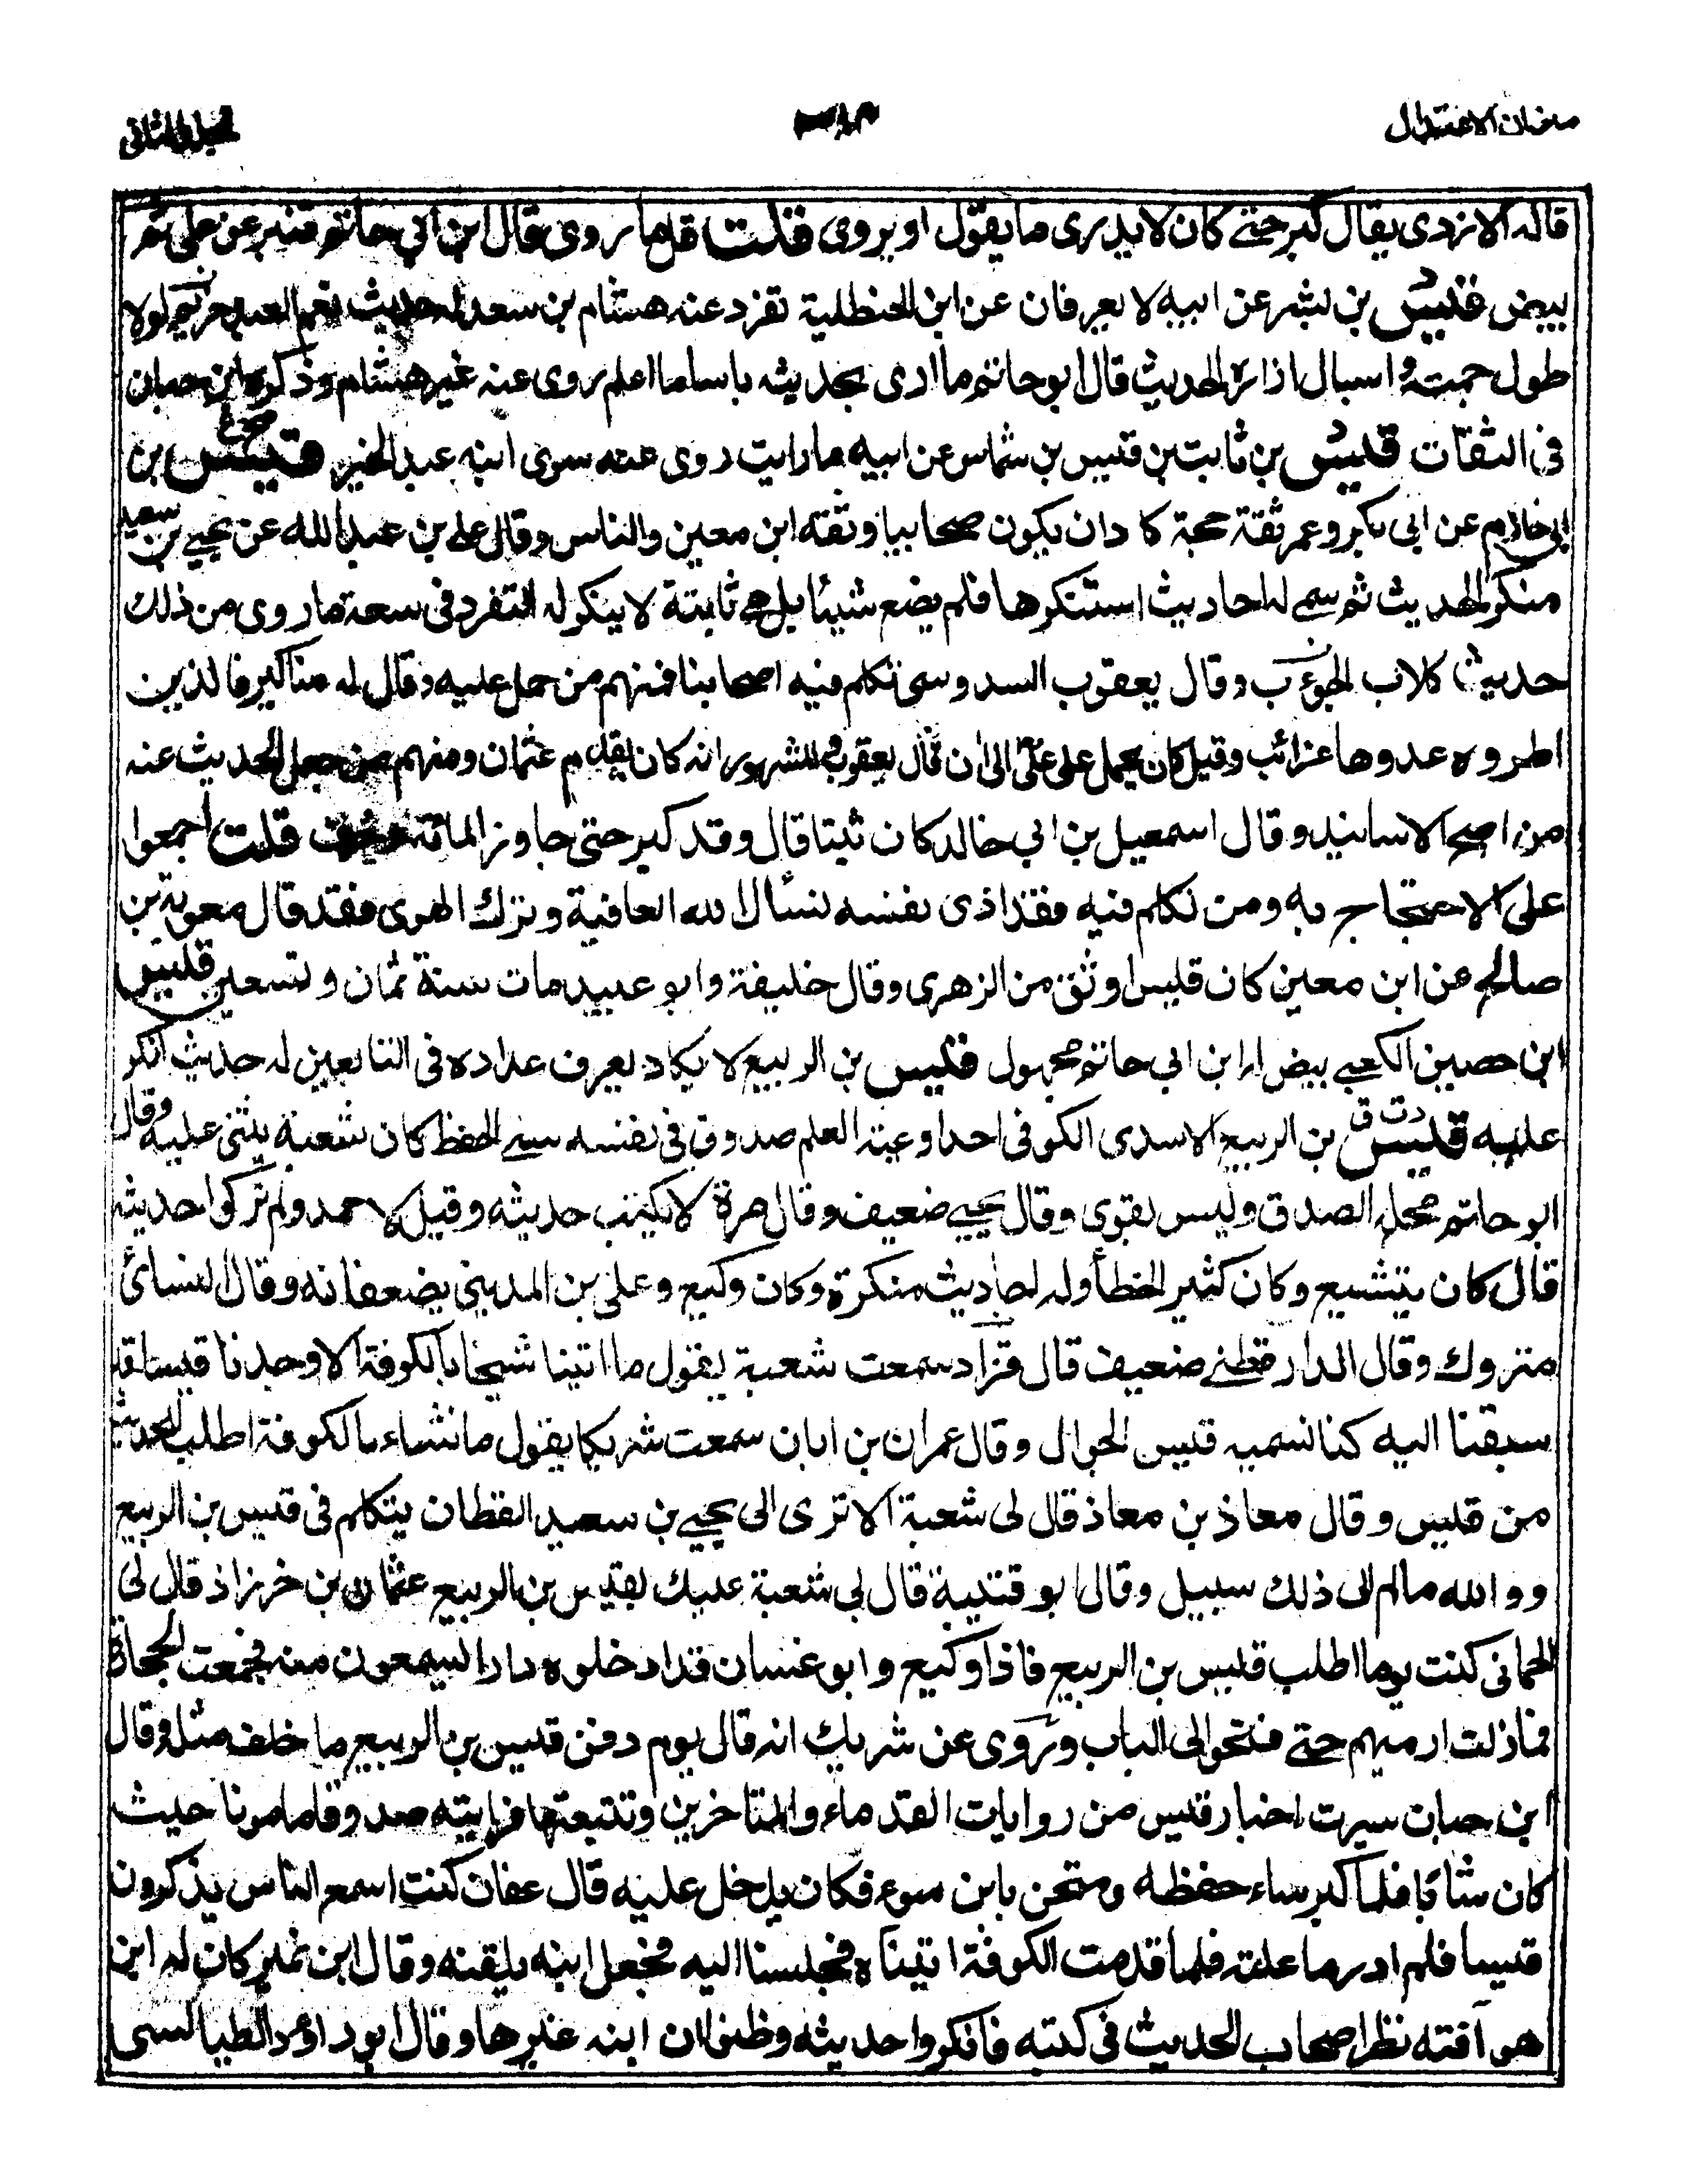 ميزان الاعتدال
المجلد الثاني
قاله الازدى يقال كبر حتى كان لا يدرى ما يقول او يروى قلت قل ما روى قال ابن ابي حاتم قنبر عن على ثم
بيض قيس بن بشر عن ابيه لا يعرفان عن ابن الحنظلية تفرد عنه هشام بن سعد له حديث نعم العبد خريم لولا
طول جمته و اسبال ازاره الحديث قال ابو حاتم ما ارى بحديثه باسا ما اعلم روى عنه غير هشام وذكره ابن حبان
فى الثقات قيس بن ثابت بن قيس بن شماس عن ابيه ما رايت روى عنه سوى ابنه عبد الخير قيس بن
ابي حازم عن ابى بكر وعمر ثقة حجة كا دان يكون صحابيا وثقه ابن معين والناس وقال على بن عبد الله عن يحيى بن سعيد
منكر الحديث ثم سمى له احاديث استنكرها فلم يضع شيئا بل هى ثابتة لا ينكر له التفرد فى سعة ما روى من ذلك
حديث كلاب الحوءب وقال يعقوب السدوسى تكلم فيه اصحابنا فمنهم من حمل عليه وقال له مناكير فالذين
اطروه عدوها غرائب وقيل كان يحمل على على الى ان قال يعقوب والمشهور انه كان يقدم عثمان ومنهم من جعل الحديث عنه
من اصح الاسانيد وقال اسمعيل بن ابي خالد كان ثبتا قال وقد كبر حتى جاوز المائة وخرف قلت اجمعوا
على الاحتجاج به ومن تكلم فيه فقد اذى نفسه نسأل الله العافية وترك الهوى فقد قال معوية بن
صالح عن ابن معين كان قيس اوثق من الزهرى وقال خليفة وابو عبيد مات سنة ثمان وتسعين قيس
ابن حصين الكعبى بيض له ابن ابي حاتم مجهول قيس بن الربيع لا يكاد يعرف عداده فى التابعين له حديث انكر
عليه قيس د ت ق بن الربيع الاسدى الكوفى احد اوعية العلم صدوق فى نفسه سيئ الحفظ كان شعبة يثنى عليه وقال
ابو حاتم محله الصدق وليس بقوى وقال يحيى ضعيف وقال مرة لا يكتب حديثه وقيل لاحمد ولم تركوا حديثه
قال كان يتشيع وكان كثير الخطأ وله احاديث منكرة وكان وكيع وعلى بن المدينى يضعفانه وقال النسائى
متروك وقال الدارقطنى ضعيف قال قراد سمعت شعبة يقول ما اتينا شيخا بالكوفة الا وجدنا قيسا قد
سبقنا اليه كنا نسميه قيس الجوال وقال عمران بن ابان سمعت شريكا يقول ما نشاء بالكوفة اطلب للحديث
من قيس وقال معاذ بن معاذ قال لى شعبة الا ترى الى يحيى بن سعيد القطان يتكلم فى قيس بن الربيع
ووالله ما له الى ذلك سبيل وقال ابو قتيبة قال لى شعبة عليك بقيس بن الربيع عثمان بن خرزاذ قال لى
الحمانى كنت يوما اطلب قيس بن الربيع فاذا وكيع وابو غسان قد ادخلوه دارا ليسمعون منه فجمعت الحجارة
فما زلت ارميهم حتى فتحوا لى الباب وروى عن شريك انه قال يوم دفن قيس بن الربيع ما خلف مثله وقال
ابن حبان سبرت اخبار قيس من روايات القدماء والمتاخرين وتتبعتها فرايته صدوقا مامونا حيث
كان شابا فلما كبر ساء حفظه وامتحن بابن سوء فكان يدخل عليه قال عفان كنت اسمع الناس يذكرون
قيسا فلم ادر ما علته فلما قدمت الكوفة اتيناه فجلسنا اليه فجعل ابنه يلقنه وقال ابن نمير كان له ابن
هو آفته نظر اصحاب الحديث فى كتبه فانكروا حديثه وظنوا ان ابنه غيرها وقال ابو داود الطيالسى